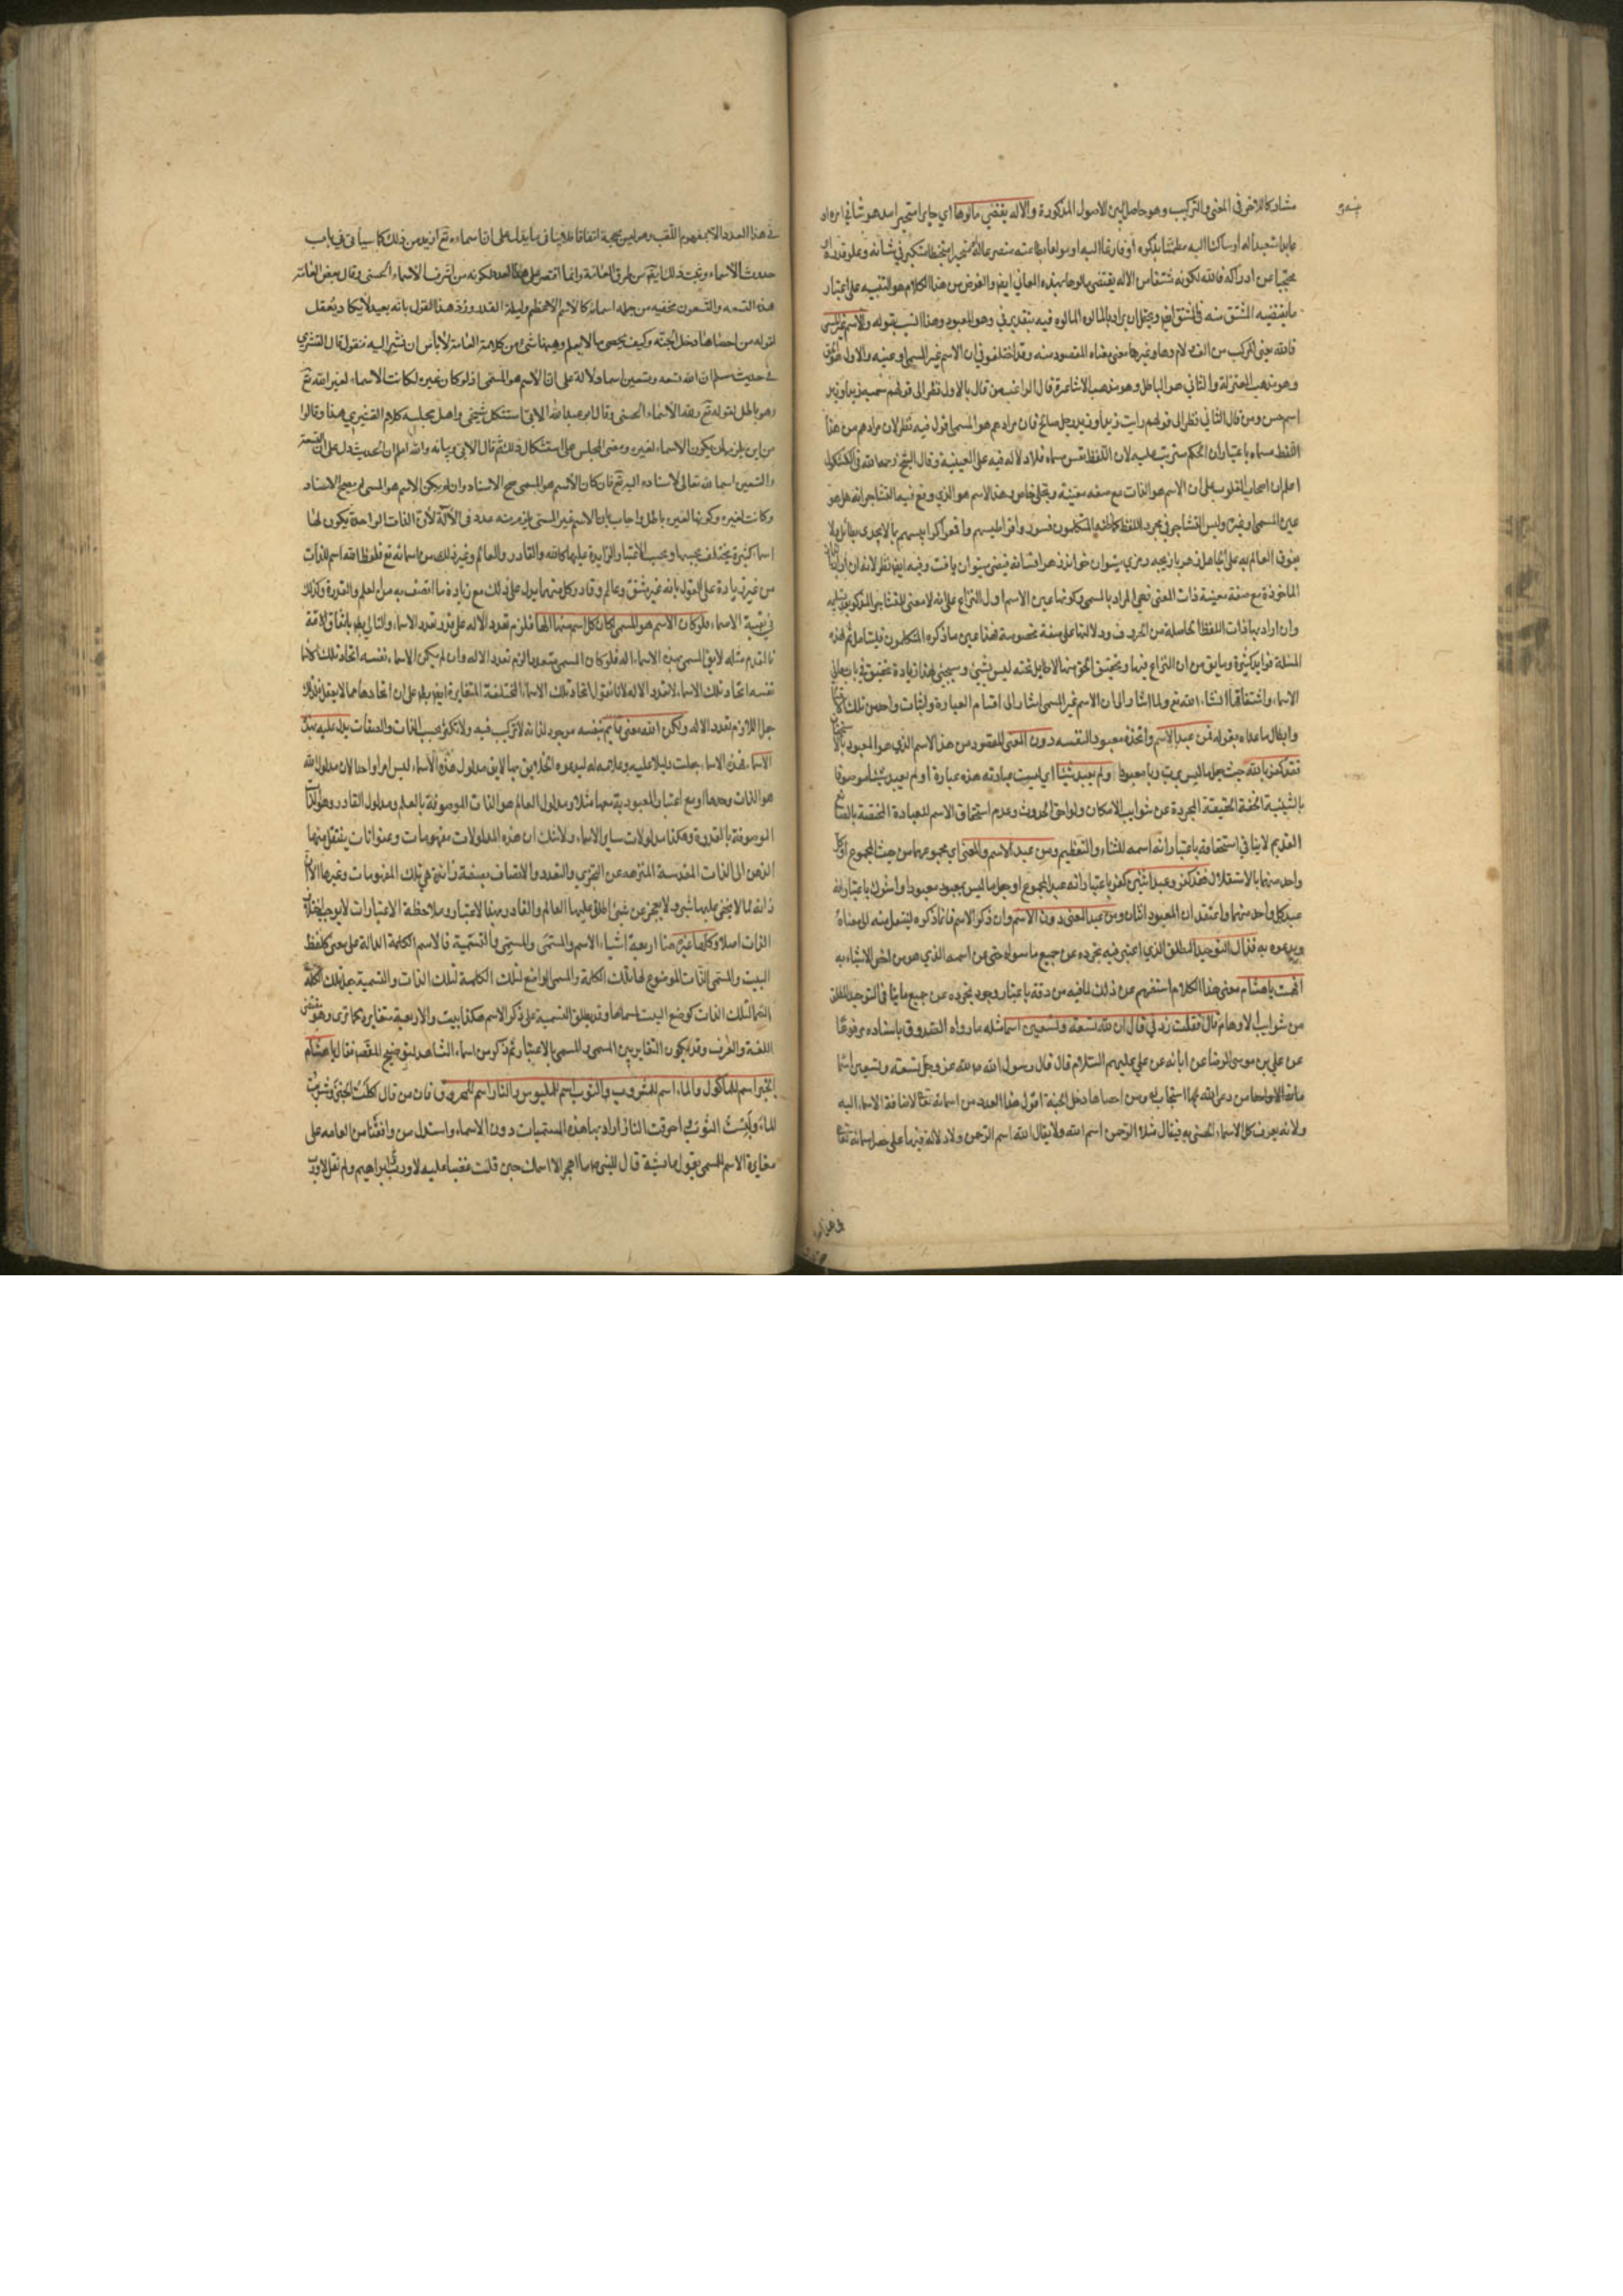 مشاركا للاخر في المعنى والتركيب وهو حاصل بين الاصول المذكورة والاله يقتضي مالوها اي جايرا متحيرا مدهوشا في امره او
عابدا متعبدا له او ساكنا اليه مطمئنا بذكره او فازعا اليه او مولعا
محتجبا عن ادراكه فالله لكونه مشتقا من الاله يقتضي مالوها بهذه المعاني ايضا والغرض من هذا الكلام هو التنبيه على اعتبار
ما يقتضيه المشتق منه في المشتق ايضا ويحتمل ان يراد بالمالوه المالوه فيه بتقدير في وهو المعبود وهذا انسب بقوله والاسم غير المسمى
فالله يعني المركب من الف ولام وهاء وغيرها معنى مغاير المقصود منه وقد اختلفوا في ان الاسم غير المسمى او عينه والاول هو الحق
وهو مذهب المعتزلة والثاني هو الباطل وهو مذهب الاشاعرة قال الراغب من قال بالاول نظر الى قولهم سميته زيدا وزيد
اسم حسن ومن قال الثاني نظر الى قولهم رايت زيدا وزيد رجل صالح فان مرادهم هو المسمى اقول فيه نظر لان مرادهم من هذا
اللفظ مسماه باعتبار ان الحكم مترتب عليه لان اللفظ نفس مسماه فلا دلالة فيه على العينية وقال الشيخ رحمه الله في الكشكول
اعلم ان اصحاب القلوب على ان الاسم هو الذات مع صفة معينة وتجلي خاص وهذا الاسم هو الذي وقع فيه التشاجر انه هل هو
عين المسمى او غيره وليس التشاجر في مجرد اللفظ كما ظنه المتكلمون فسودوا قراطيسهم وافعموا كراريسهم بما لا يجدي بطائل ولا
يفوق العالم به على الجاهل
الماخوذة مع صفة معينة ذات المعنى فهي المراد بالمسمى وكونها عين الاسم اول النزاع على انه لا معنى للتشاجر المذكور
وان اراد بها ذات اللفظ الحاصلة من الحروف ودلالتها على صفة مخصوصة فهذا عين ما ذكره المتكلمون فليتامل ثم لهذه
المسئلة فوايد كثيرة وما يق من ان النزاع فيها وتحقيق الحق منها لا طايل تحته ليس بشيئ وسيجيئ لهذا زيادة تحقيق في باب معاني
الاسماء واشتقاقها انشاء الله تع ولما اشار الى ان الاسم غير المسمى اشار الى اقسام العبارة واثبات واحد من تلك الاقسام
وابطال ما عداه بقوله فمن عبد الاسم واتخذه معبودا لنفسه دون المعنى المقصود من هذا الاسم الذي هو المعبود
فقد كفر بالله حيث جعل ما ليس برب ربا معبودا ولم يعبد شيئا اي ليست عبادته هذه عبارة او لم يعبد شيئا موصوفا
بالشيئية الحقة الحقيقية المجردة عن شوايب الامكان ولواحق الحدوث وعدم استحقاق الاسم للعبادة المختصة بالصانع
القديم لا ينافي استحقاقه باعتبار انه اسمه للثناء والتعظيم ومن عبد الاسم والمعنى اي مجموعهما من حيث المجموع او كل
واحد منهما بالاستقلال فقد كفر وعبد اثنين كفر باعتبار انه عبد المجموع او جعل ما ليس بمعبود معبودا واشرك باعتبار انه
عبد كل واحد منهما واعتقد ان المعبود اثنان ومن عبد المعنى دون الاسم وان ذكر الاسم فانما ذكره لينتقل منه الى معناه
ويدعوه به فذاك التوحيد المطلق الذي اعتبر فيه تجرده عن جميع ما سواه حتى من اسمه الذي هو من اخص الاشياء به
افهمت يا هشام معنى هذا الكلام استفهم عن ذلك لما فيه من دقة باعتبار وجود تجرده عن جميع ما ينافي التوحيد المطلق
من شوايب الاوهام قال فقلت زدني قال ان لله تسعة وتسعين اسما مثله ما رواه الصدوق باسناده مرفوعا
عن علي بن موسى الرضا عن ابائه عن علي عليهم السلام قال قال رسول الله ص لله عز وجل تسعة وتسعين اسما
مائة الا واحدا من دعى الله بها استجاب له ومن احصاها دخل الجنة اقول هذا العدد من اسمائه تعا لاضافة الاسماء اليه
ولانه يعرف كل الاسماء الحسنى به فيقال مثلا الرحمن اسم الله ولا يقال الله اسم الرحمن ولا دلالة فيها على حصر اسمائه تعا
في هذا
في هذا العدد الا بمفهوم اللقب وهو ليس بحجة اتفاقا فلا ينافي ما يدل على ان اسماءه تع ازيد من ذلك كما سياتي في باب
حدوث الاسماء وثبت ذلك ايضا من طرق العامة وانما اقتصر على هذا العدد لكونه من اشرف الاسماء الحسنى وقال بعض العامة
هذه التسعة والتسعون مخفية من جملة اسمائه كالاسم الاعظم وليلة القدر ورد هذا القول بانه بعيد لا يكاد يعقل
لقوله من احصاها دخل الجنة وكيف يحصى ما لا يعلم وههنا شئ من كلام العامة لا باس ان نشير اليه فنقول قال القشيري
في حديث مسلم ان لله تسعة وتسعين اسما دلالة على ان الاسم هو المسمى اذ لو كان غيره لكانت الاسماء لغير الله تع
وهو باطل لقوله تع ولله الاسماء الحسنى وقال ابو عبد الله الابي استشكل شيخي واهل مجلسه كلام القشيري هذا وقالوا
من اين يلزم ان يكون الاسماء لغيره ومضى المجلس على استشكال ذلك ثم قال الابي وبيانه والله اعلم ان الحديث دل على ان التسعة
والتسعين اسما لله تعالى لاسناده اليه تع فان كان الاسم هو المسمى صح الاسناد وان لم يكن الاسم هو المسمى لم يصح الاسناد
وكانت لغيره وكونها لغيره باطل واجاب بان الاسم غير المسمى ولا يلزم منه عدد في الالهة لان الذات الواحدة يكون لها
اسماء كثيرة يختلف بحسبها وبحسب الاعتبار الزايدة عليها كالله والقادر والعالم وغير ذلك من اسمائه تع فلفظ الله اسم للذات
من غير زيادة على القول بانه غير مشتق وعالم وقادر وكل منهما يدل على ذلك مع زيادة ما اتصف به من العلم والقدرة وكذلك
في بقية الاسماء فلو كان الاسم هو المسمى لكان كل اسم منها الها فلزم تعدد الاله على تقدير تعدد الاسماء والتالي بط باتفاق الامة
فالمقدم مثله لايق المسمى بهذه الاسماء اله فلو كان المسمى متعددا لزم تعدد الاله وان لم يكن الاسماء نفسه اتحاد تلك الاسماء
نفسه اتحاد تلك الاسماء لا تعدد الاله لانا نقول اتحاد تلك الاسماء المختلفة المتغايرة ايضا بط على ان اتحادها مما لا يعقل فذلك
جعل اللازم تعدد الاله ولكن الله معنى قايم بنفسه موجود لذاته لا تركيب فيه ولا تكثر بحسب الذات والصفات يدل عليه بهذه
الاسماء فهذه الاسماء جعلت دليلا عليه وعلامة له ليدعوه الخلايق بها لايق مدلول هذه الاسماء ليس امرا واحدا لان مدلول الله
هو الذات وحدها او مع اعتبار المعبودية معها مثلا ومدلول العالم هو الذات الموصوفة بالعلم ومدلول القادر هو الذات
الموصوفة بالقدرة وهكذا مدلولات ساير الاسماء ولا شك ان هذه المدلولات مفهومات وعنوانات ينتقل منها
الذهن الى الذات المقدسة المنزهة عن التجزي والتعدد والاتصاف بصفة زائدة هي تلك المفهومات وغيرها الا ان
ذاته لما لا يخفى عليها شئ ولا يعجز عن شئ اطلق عليها العالم والقادر بهذا الاعتبار وملاحظة الاعتبارات لا يوجب اختلاف
الذات اصلا وكلها غيره هنا اربعة اشياء الاسم والمسمى والمسمي والتسمية فالاسم الكلمة الدالة على معنى كلفظ
البيت والمسمى الذات الموضوع لها تلك الكلمة والمسمي الواضع لتلك الكلمة لتلك الذات والتسمية جعل تلك الكلمة
اسما لتلك الذات كوضع البيت اسما لها وقد يطلق التسمية على ذكر الاسم هكذا بيت والاربعة متغايرة كما ترى وهو مقتضى
اللغة والعرف وقد يكون التغاير بين المسمي والمسمى بالاعتبار ثم ذكر من اسماء الشاهد لتوضيح المقصد فقال يا هشام
الخبز اسم للماكول والماء اسم للمشروب والثوب اسم للملبوس والنار اسم للمحروق فان من قال اكلت الخبز وشربت
الماء ولبست الثوب واحرقت النار اراد بها هذه المسميات دون الاسماء واستدل من وافقنا من العامة على
مغايرة الاسم للمسمى بقول عايشة قال للنبي ص ما اهجر الا اسمك حين قلت غضبا عليه لا ورب ابراهيم ولم تقل لا ورب